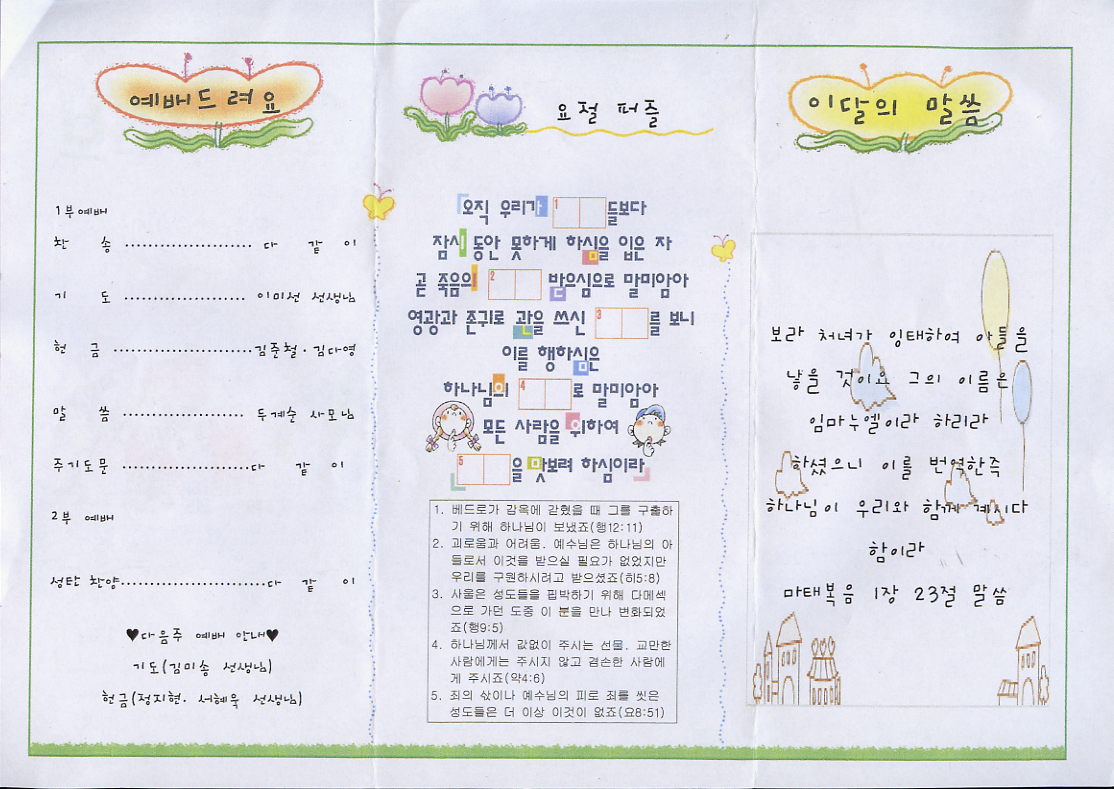 예배드려요
1부예배
찬 송 ........................ 다 같 이
기 도 ....................... 이미선 선생님
헌 금 ..........................김준철·김다영
말 씀 ....................... 두계순 사모님
주기도문 ........................다 같 이
2부 예배
성탄 찬양...........................다 같 이
♥다음주 예배 안내♥
기도(김미송 선생님)
헌금(정지현. 서혜욱 선생님)
요절 퍼즐
오직 우리가 1 들보다
잠시 동안 못하게 하심을 입은 자
곧 죽음의 2 받으심으로 말미암아
영광과 존귀로 관을 쓰신 3 를 보니
이를 행하심은
하나님의 4 로 말미암아
모든 사람을 위하여
5 을 맛보려 하심이라
1. 베드로가 감옥에 갇혔을 때 그를 구출하
기 위해 하나님이 보냈죠(행12:11)
2. 괴로움과 어려움. 예수님은 하나님의 아
들로서 이것을 받으실 필요가 없었지만
우리를 구원하시려고 받으셨죠(히5:8)
3. 사울은 성도들을 핍박하기 위해 다메섹
으로 가던 도중 이 분을 만나 변화되었
죠(행9:5)
4. 하나님께서 값없이 주시는 선물. 교만한
사람에게는 주시지 않고 겸손한 사람에
게 주시죠(약4:6)
5. 죄의 삯이나 예수님의 피로 죄를 씻은
성도들은 더 이상 이것이 없죠(요8:51)
이달의 말씀
보라 처녀가 잉태하여 아들을
낳을 것이요 그의 이름은
임마누엘이라 하리라
하셨으니 이를 번역한즉
하나님이 우리와 함께 계시다
함이라
마태복음 1장 23절 말씀